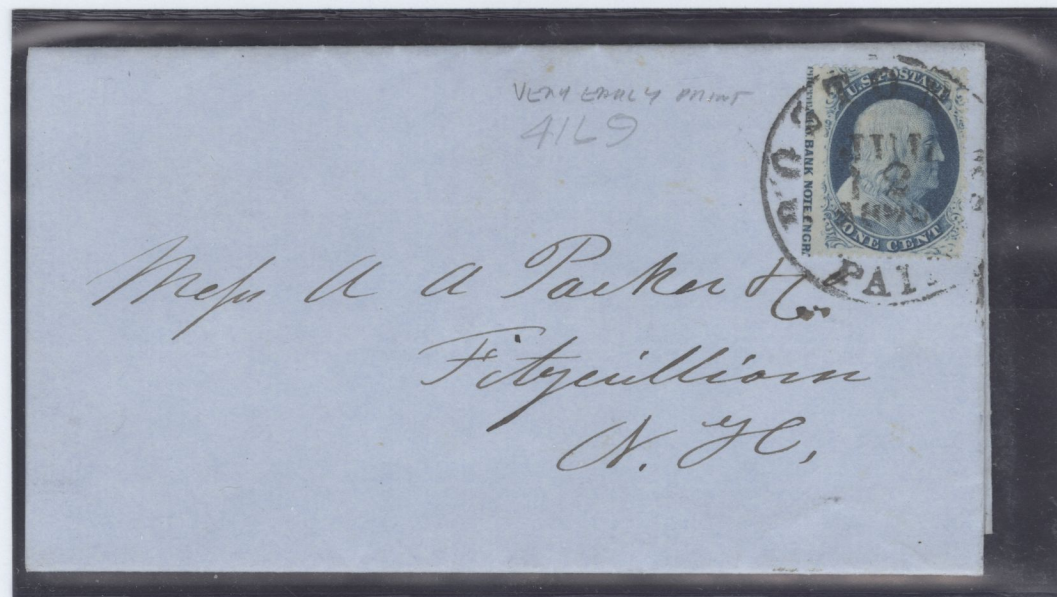 VERY EARLY PRINT
41L9
U.S. POSTAGE
ONE CENT
BANK NOTE ENGR.
BOSTON
JUN
12
PAID
Mess A A Parker & Co.
Fitzwilliam
N. H.